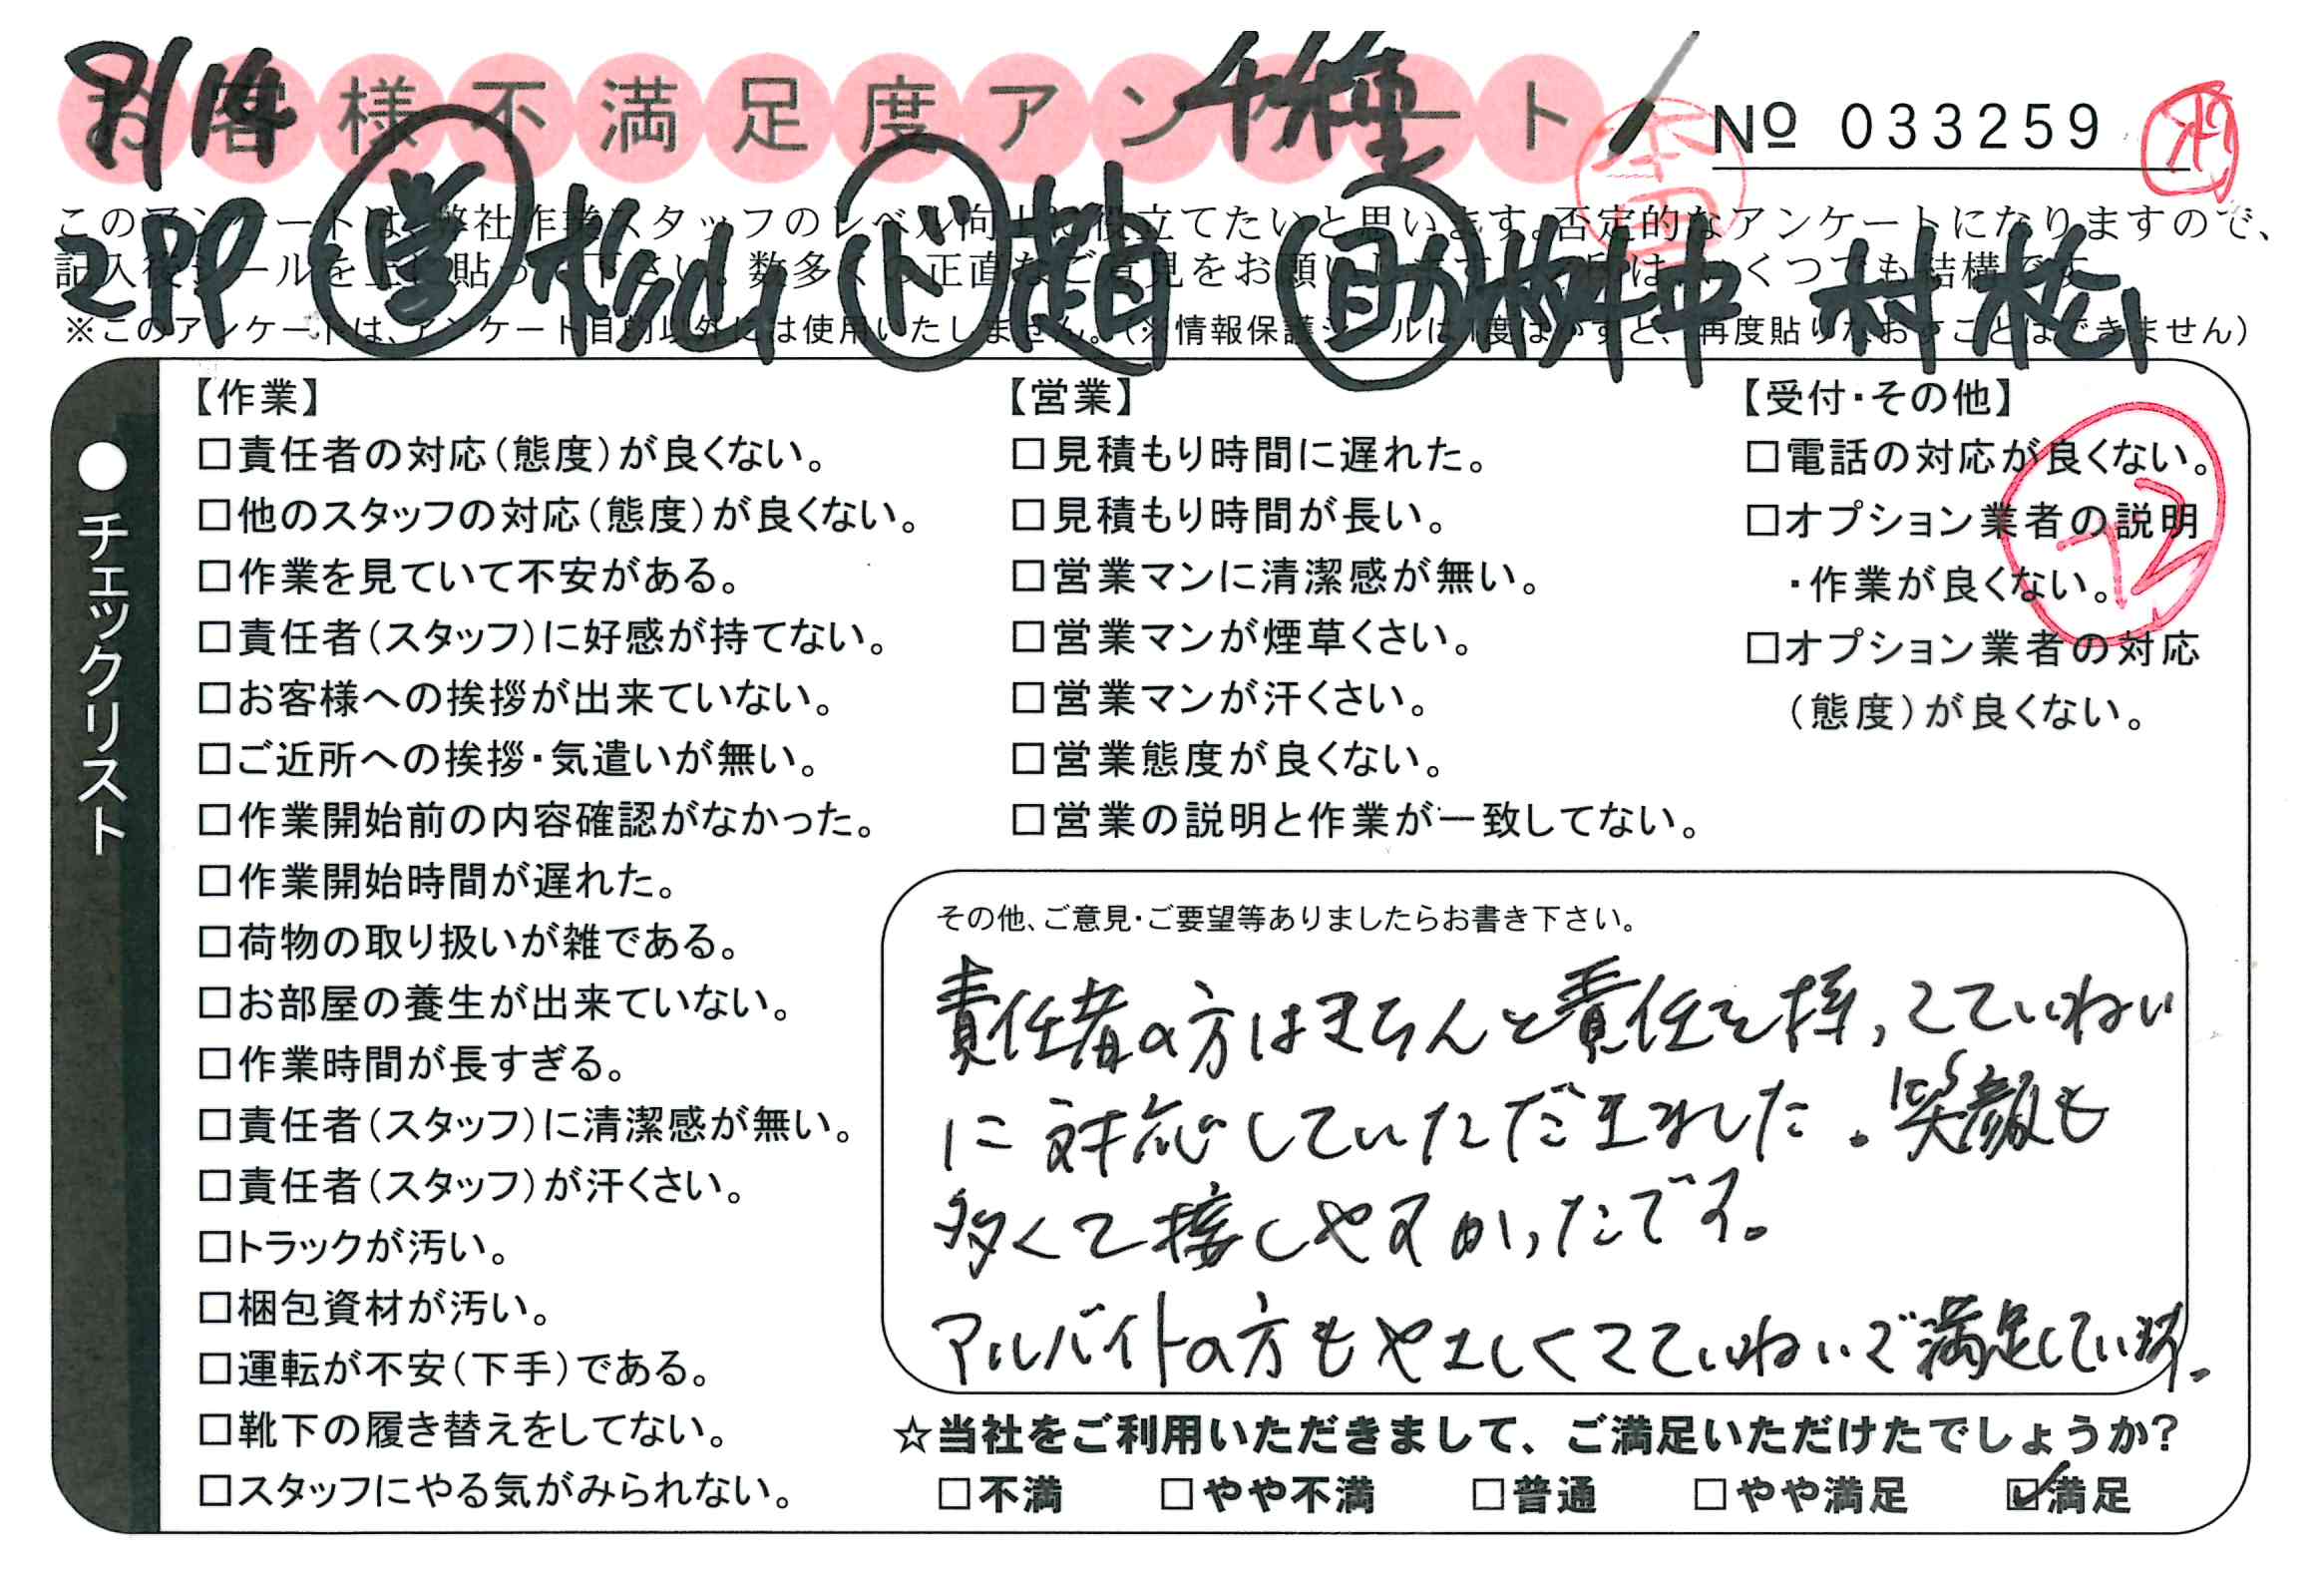 お客様不満足度アンケート
8/14
千種
本田
№ 033259
このアンケートは、弊社作業スタッフのレベル向上に役立てたいと思います。否定的なアンケートになりますので、
記入後シールを上に貼って下さい。数多くの正直なご意見をお願いします。
※このアンケートは、アンケート目的以外には使用いたしません。(※情報保護シールは1度はがすと、再度貼りなおすことはできません)
2PP 営 杉山 ド 趙 助 村松
●チェックリスト
【作業】
□責任者の対応(態度)が良くない。
□他のスタッフの対応(態度)が良くない。
□作業を見ていて不安がある。
□責任者(スタッフ)に好感が持てない。
□お客様への挨拶が出来ていない。
□ご近所への挨拶・気遣いが無い。
□作業開始前の内容確認がなかった。
□作業開始時間が遅れた。
□荷物の取り扱いが雑である。
□お部屋の養生が出来ていない。
□作業時間が長すぎる。
□責任者(スタッフ)に清潔感が無い。
□責任者(スタッフ)が汗くさい。
□トラックが汚い。
□梱包資材が汚い。
□運転が不安(下手)である。
□靴下の履き替えをしてない。
□スタッフにやる気がみられない。
【営業】
□見積もり時間に遅れた。
□見積もり時間が長い。
□営業マンに清潔感が無い。
□営業マンが煙草くさい。
□営業マンが汗くさい。
□営業態度が良くない。
□営業の説明と作業が一致してない。
【受付・その他】
□電話の対応が良くない。
□オプション業者の説明
・作業が良くない。
□オプション業者の対応
(態度)が良くない。
+2
その他、ご意見・ご要望等ありましたらお書き下さい。
責任者の方はきちんと責任を持ってていねい
に対応していただきました。笑顔も
多くて接しやすかったです。
アルバイトの方もやさしくてていねいで満足しています。
☆当社をご利用いただきまして、ご満足いただけたでしょうか?
□不満 □やや不満 □普通 □やや満足 ☑満足